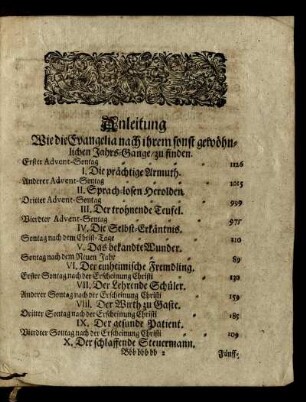 Anleitung
Wie die Evangelia nach ihrem sonst gewöhn-
lichen Jahrs-Gange/zu finden.
Erster Advent-Sontag 1126
I. Die prächtige Armuth.
Anderer Advent-Sontag 1015
II. Sprach-losen Herolden.
Dritter Advent-Sontag 999
III. Der trohnende Teufel.
Vierdter Advent-Sontag 975
IV. Die Selbst-Erkäntnis.
Sontag nach dem Christ-Tage 110
V. Das bekandte Wunder.
Sontag nach dem Neuen Jahr 89
VI. Der einheimische Frembdling.
Erster Sontag nach der Erscheinung Christi 130
VII. Der Lehrende Schüler.
Anderer Sontag nach der Erscheinung Christi 159
VIII. Der Wirth zu Gaste.
Dritter Sontag nach der Erscheinung Christi 185
IX. Der gesunde Patient.
Vierdter Sontag nach der Erscheinung Christi 109
X. Der schlaffende Steuermann.
Bbb bbb bb 2 Fünff-